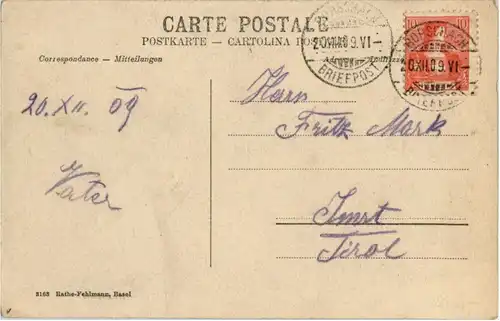 CARTE POSTALE
POSTKARTE - CARTOLINA POS
Correspondance - Mitteilungen
RORSCHACH
20.XII.09.VI-
BRIEFPOST
10 10
RORSCHACH
20.XII.09.VI-
BRIEFPOST
20. XII. 09
Herrn
Fritz Mark
Vater
Imst
Tirol
3163 Rathe-Fehlmann, Basel